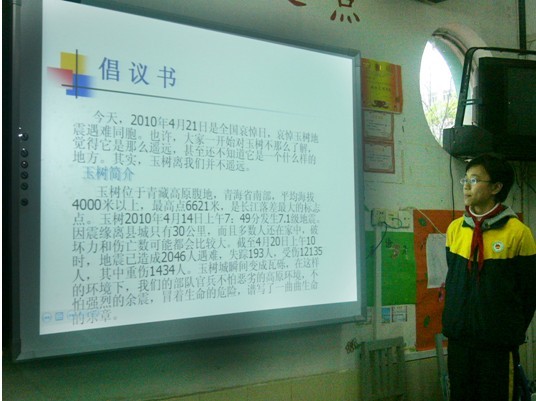 倡议书
今天，2010年4月21日是全国哀悼日，哀悼玉树地
震遇难同胞。也许，大家一开始对玉树不那么了解，
觉得它是那么遥远，甚至还不知道它是一个什么样的
地方。其实，玉树离我们并不遥远。
玉树简介
玉树位于青藏高原腹地，青海省南部，平均海拔
4000米以上，最高点6621米，是长江落差最大的标志
点。玉树2010年4月14日上午7：49分发生7.1级地震。
因震缘离县城只有30公里，而且多数人还在家中，破
坏力和伤亡数可能都会比较大。截至4月20日上午10
时，地震已造成2046人遇难，失踪193人，受伤12135
人，其中重伤1434人。玉树城瞬间变成瓦砾，在这样
的环境下，我们的部队官兵不怕恶劣的高原环境，不
怕强烈的余震，冒着生命的危险，谱写了一曲曲生命
的乐章。
点